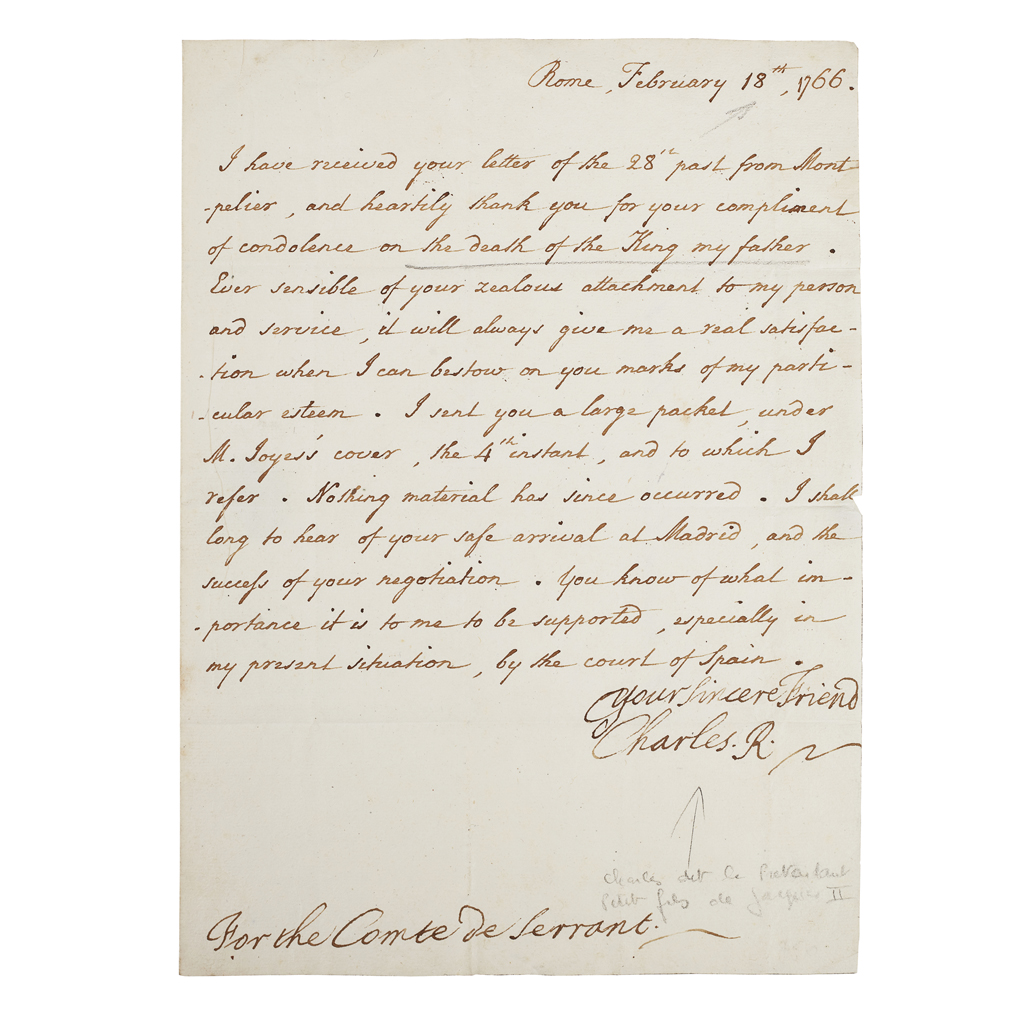 Rome, February 18th, 1766.
I have received your letter of the 28th past from Mont
-pelier, and heartily thank you for your compliment
of condolence on the death of the King my father.
Ever sensible of your zealous attachment to my person
and service, it will always give me a real satisfac-
-tion when I can bestow on you marks of my parti-
-cular esteem. I sent you a large packet, under
M. Joyes's cover, the 4th instant, and to which I
refer. Nothing material has since occurred. I shall
long to hear of your safe arrival at Madrid, and the
success of your negotiation. You know of what im-
-portance it is to me to be supported, especially in
my present situation, by the court of Spain.
Your sincere Friend
Charles. R.
Charles dit le Prétendant
petit fils de Jacques II
For the Comte de Serrant.